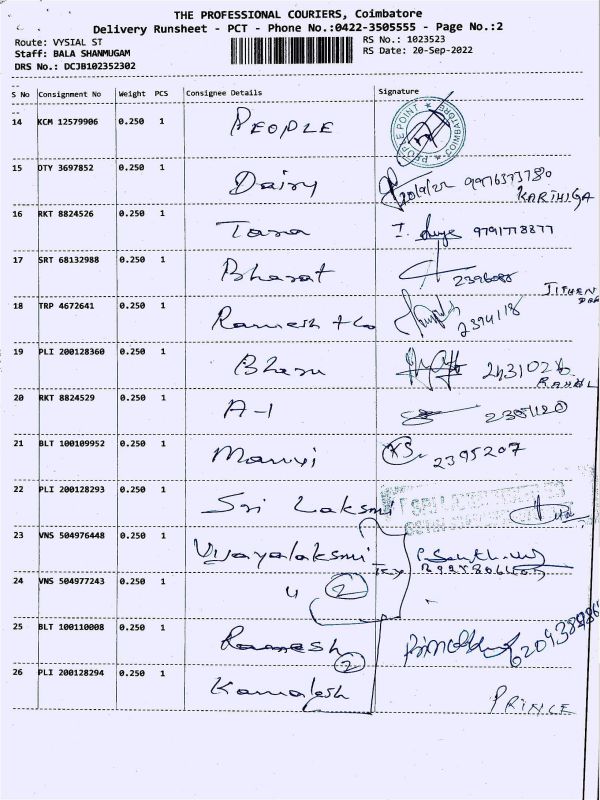 THE PROFESSIONAL COURIERS, Coimbatore
Delivery Runsheet - PCT - Phone No.:0422-3505555 - Page No.:2
Route: VYSIAL ST
RS No.: 1023523
Staff: BALA SHANMUGAM
RS Date: 20-Sep-2022
DRS No.: DCJB102352302
S No Consignment No Weight PCS Consignee Details Signature
14 KCM 12579906 0.250 1 PEOPLE
PEOPLE POINT ★ COIMBATORE ★
15 DTY 3697852 0.250 1 Dairy 20/9/22 9976373780
KARTHIGA
16 RKT 8824526 0.250 1 Tara 9791778877
17 SRT 68132988 0.250 1 Bharat 2396088
JITHEN
18 TRP 4672641 0.250 1 Ramesh + Co 2394118
19 PLI 200128360 0.250 1 2431026
RAHUL
20 RKT 8824529 0.250 1 A-1
21 BLT 100109952 0.250 1 KS. 2395207
22 PLI 200128293 0.250 1 Sri Laksmi
23 VNS 504976448 0.250 1 Vijayalaksmi
24 VNS 504977243 0.250 1 " 2
25 BLT 100110008 0.250 1 Ramesh 2
26 PLI 200128294 0.250 1 Kamalesh
PRINCE